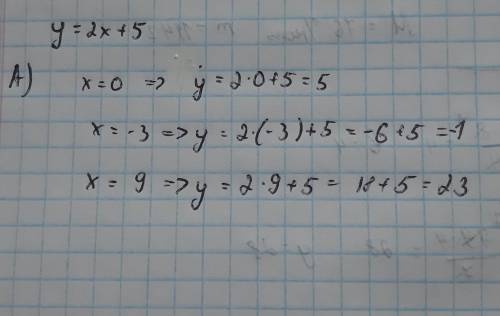 y = 2x + 5
A) x = 0 => y = 2·0 + 5 = 5
x = -3 => y = 2·(-3) + 5 = -6 + 5 = -1
x = 9 => y = 2·9 + 5 = 18 + 5 = 23